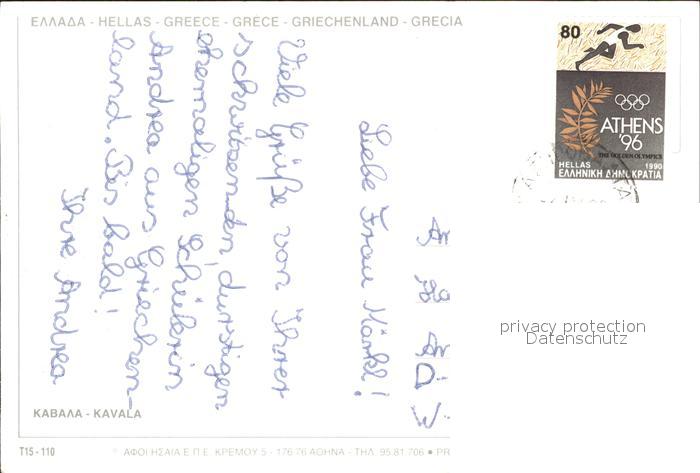 ΕΛΛΑΔΑ - HELLAS - GREECE - GRÈCE - GRIECHENLAND - GRECIA
Liebe Frau Märkl!
Viele Grüße von Ihrer
schwitzenden, durstigen
ehemaligen Schülerin
Andrea aus Griechen-
land. Bis bald!
Ihre Andrea
80
ATHENS
'96
THE GOLDEN OLYMPICS
HELLAS 1990
ΕΛΛΗΝΙΚΗ ΔΗΜΟΚΡΑΤΙΑ
privacy protection
Datenschutz
ΚΑΒΑΛΑ - KAVALA
T15 - 110
ΑΦΟΙ ΗΣΑΙΑ Ε.Π.Ε. ΚΡΕΜΟΥ 5 - 176 76 ΑΘΗΝΑ - ΤΗΛ. 95.81.706 • PR